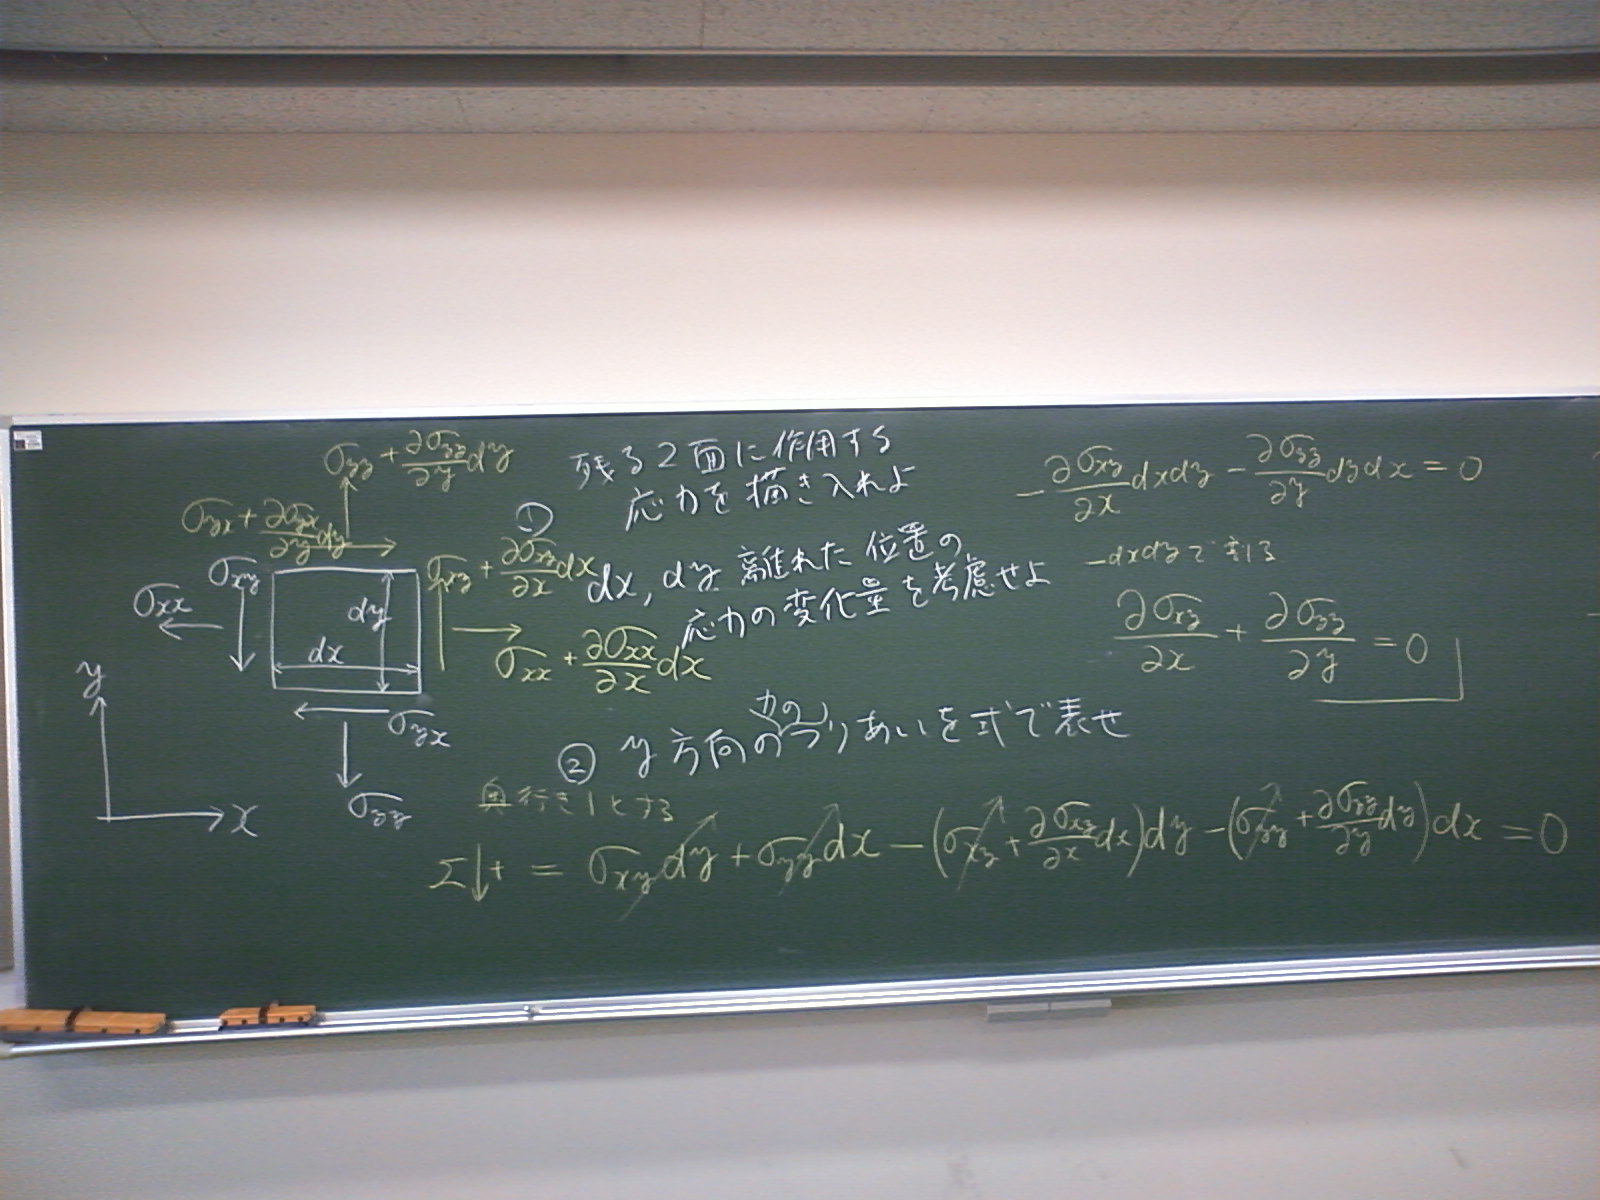 σyy + ∂σyy/∂y dy
σyx + ∂σyx/∂y dy
σxy
σxx
dy
dx
σxy + ∂σxy/∂x dx
σxx + ∂σxx/∂x dx
σyx
σyy
y
x
残る2面に作用する
応力を描き入れよ
①
dx, dy 離れた位置の
応力の変化量を考慮せよ
② y方向の力のつりあいを式で表せ
奥行き1とする
Σ↓+ = σxy dy + σyy dx − (σxy + ∂σxy/∂x dx)dy − (σyy + ∂σyy/∂y dy)dx = 0
− ∂σxy/∂x dxdy − ∂σyy/∂y dydx = 0
−dxdyで割る
∂σxy/∂x + ∂σyy/∂y = 0